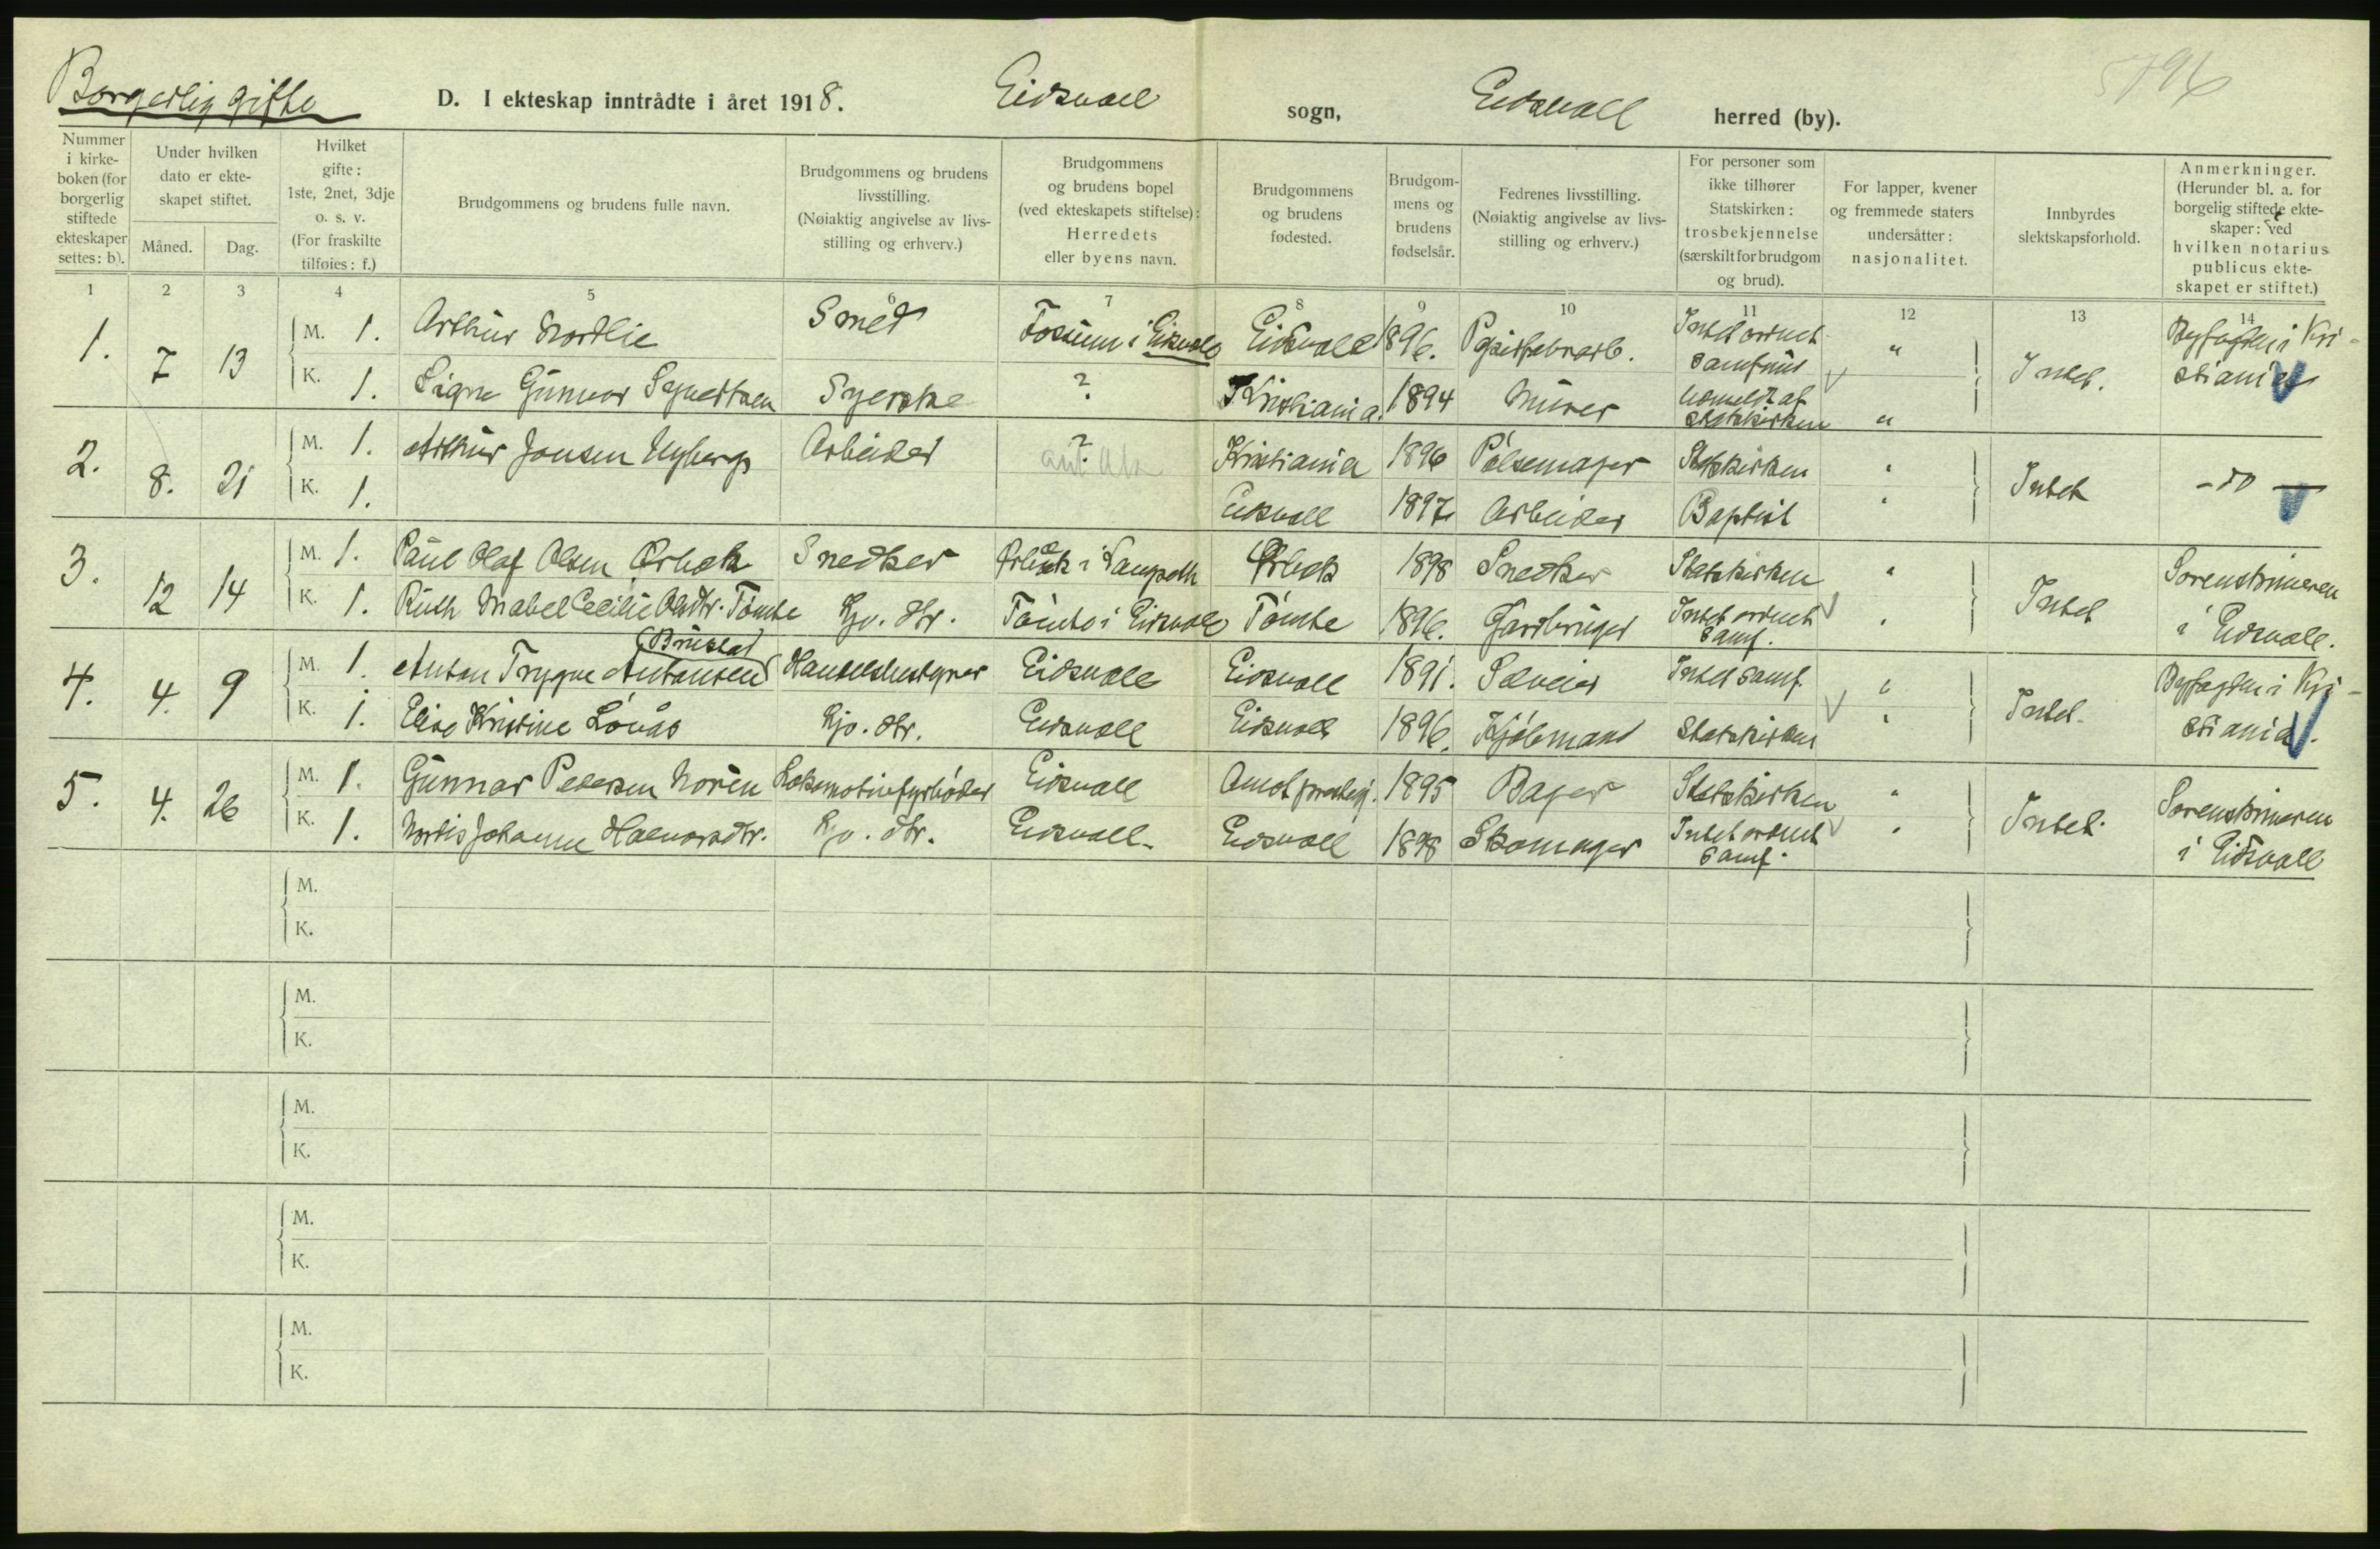 Borgerlig gifte
D. I ekteskap inntrådte i året 1918. Eidsvoll sogn, Eidsvoll herred (by).
Nummer i kirkeboken (for borgerlig stiftede ekteskaper settes: b).
Under hvilken dato er ekteskapet stiftet.
Måned. Dag.
Hvilket gifte: 1ste, 2net, 3dje o. s. v. (For fraskilte tilføies: f.)
Brudgommens og brudens fulle navn.
Brudgommens og brudens livsstilling. (Nøiaktig angivelse av livsstilling og erhverv.)
Brudgommens og brudens bopel (ved ekteskapets stiftelse): Herredets eller byens navn.
Brudgommens og brudens fødested.
Brudgommens og brudens fødselsår.
Fedrenes livsstilling. (Nøiaktig angivelse av livsstilling og erhverv.)
For personer som ikke tilhører Statskirken: trosbekjennelse (særskilt for brudgom og brud).
For lapper, kvener og fremmede staters undersåtter: nasjonalitet.
Innbyrdes slektskapsforhold.
Anmerkninger. (Herunder bl. a. for borgelig stiftede ekteskaper: ved hvilken notarius publicus ekteskapet er stiftet.)
1 2 3 4 5 6 7 8 9 10 11 12 13 14
1. 7 13 M. 1. Arthur Nordlie Smed Fosum i Eidsvoll Eidsvoll 1896. Papirfabrarb. Intet ordnet samfund " Intet. Byfogden i Kristiania
K. 1. Signe Gunvor Syerske ? Kristiania. 1894 Murer Utmeldt af statskirken "
2. 8. 21 M. 1. Arthur Jonsen Nyberg Arbeider ? Kristiania 1896 Pølsemager Statskirken " Intet - do -
K. 1. Eidsvoll 1897 Arbeider Baptist "
3. 12 14 M. 1. Paul Olaf Olsen Ørbæk Snedker Ørbæk i Ørbæk 1898 Snedker Statskirken " Intet Sorenskriveren i Eidsvoll.
K. 1. Ruth Mabel Cecilie Olsdtr. Tømte Hjv. dtr. Tømte i Eidsvoll Tømte 1896. Gardbruger Intet ordnet samf. "
4. 4. 9 M. 1. Anton Trygve Antonsen (Brustad) Handelsbestyrer Eidsvoll Eidsvoll 1891. Selveier Intet samf. " Intet. Byfogden i Kristiania.
K. 1. Elise Kristine Lønås Hjv. dtr. Eidsvoll Eidsvoll 1896. Kjøbmand Statskirken "
5. 4. 26 M. 1. Gunnar Pedersen Noren Lokomotivfyrbøder Eidsvoll Amot prestegj. 1895 Bager Statskirken " Intet. Sorenskriveren i Eidsvoll
K. 1. Nordis Johanne Halvorsdtr. Hjv. dtr. Eidsvoll. Eidsvoll 1898 Skomager Intet ordnet samf. "
M.
K.
M.
K.
M.
K.
M.
K.
M.
K.